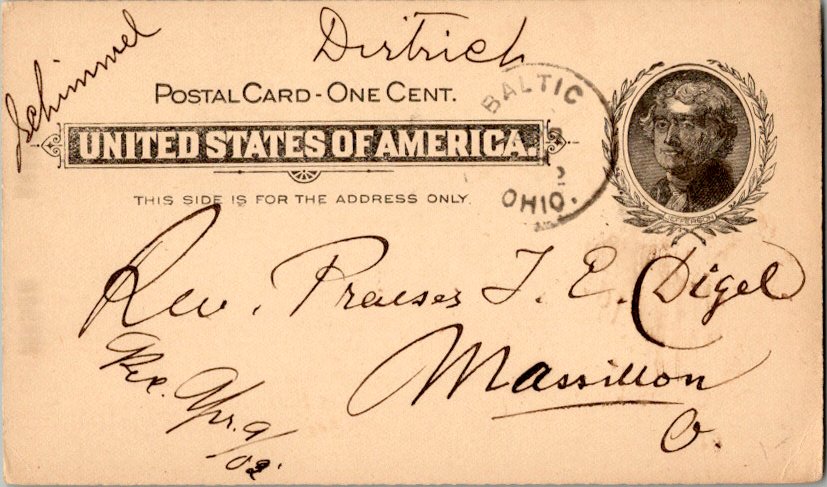 Schimmel
Dirtrich
POSTAL CARD - ONE CENT.
UNITED STATES OF AMERICA.
THIS SIDE IS FOR THE ADDRESS ONLY.
BALTIC
2
OHIO.
JEFFERSON
Rev. Praeses J. E. Digel
Massillon
O.
Rec. Apr. 9/
02.